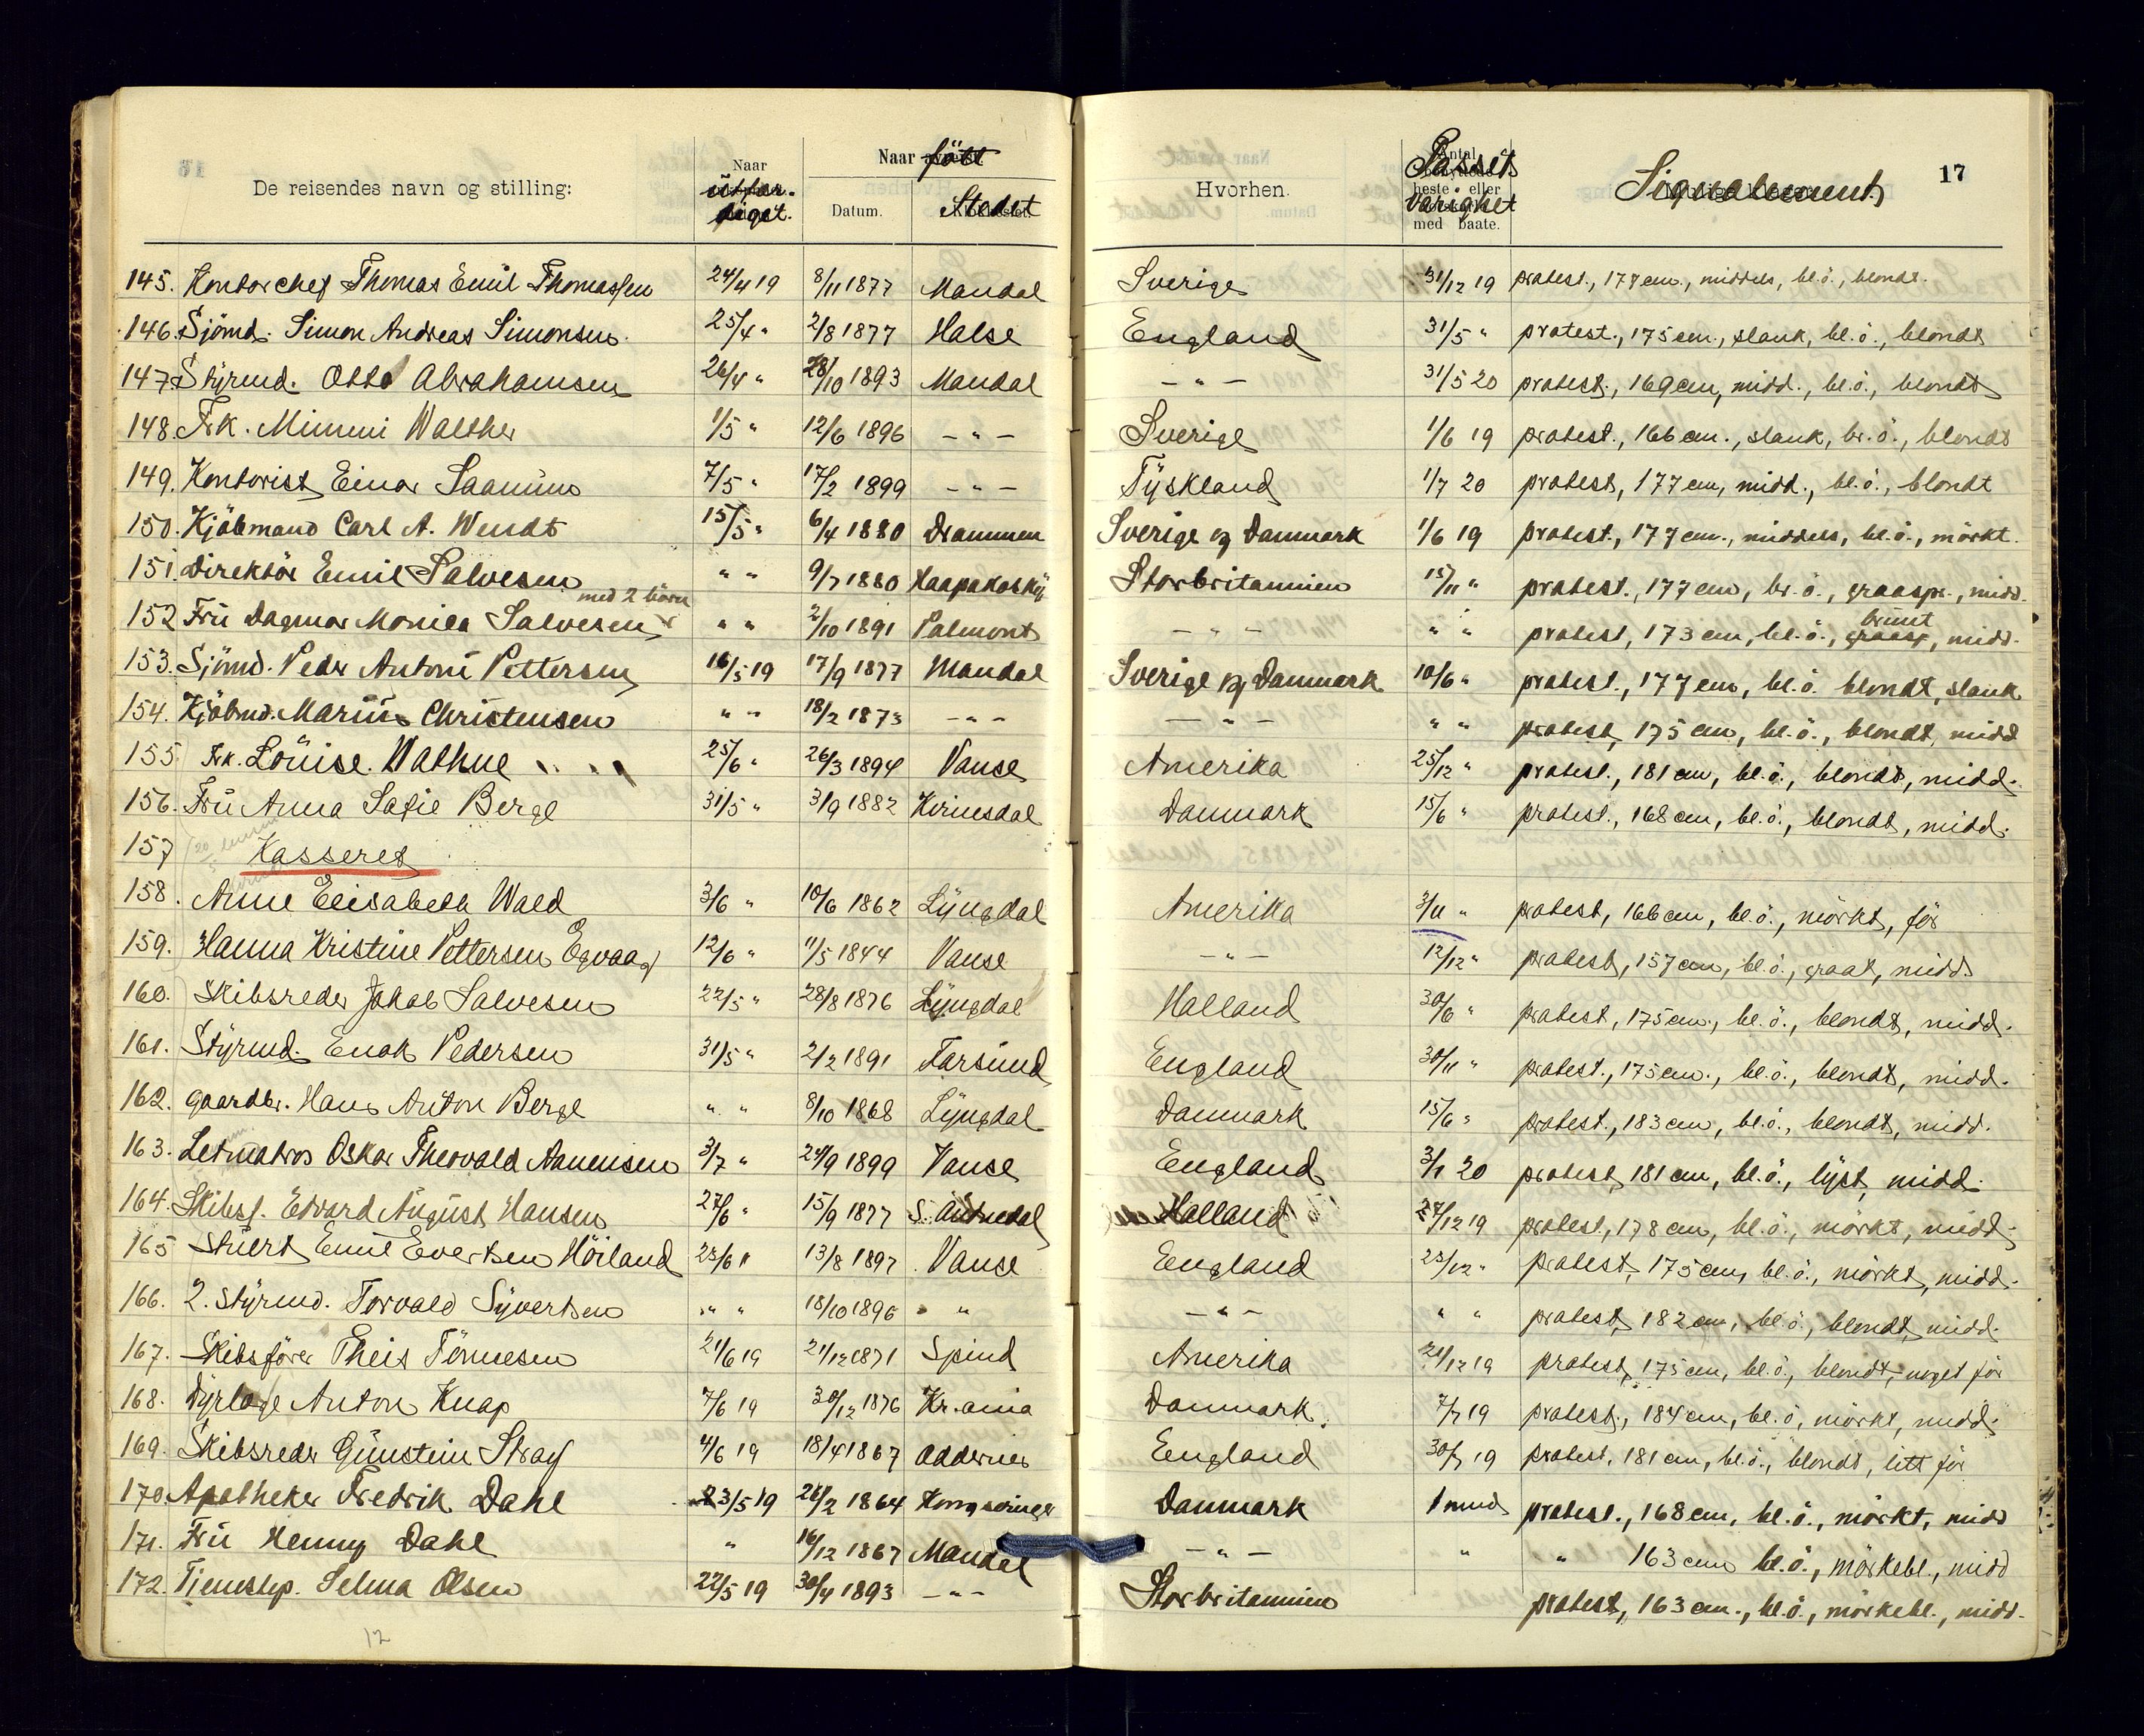 De reisendes navn og stilling: Naar utfær- diget. Naar født Datum. Stedet Hvorhen. Passets varighet Signalement 17
145. Kontorchef Thomas Emil Thomassen 24/4 19 8/11 1877 Mandal Sverige 31/12 19 protest., 177 cm., middels, bl.ö., blondt.
146. Sjömd. Simon Andreas Simonsen 25/4 " 2/8 1877 Halse England 31/5 " protest., 175 cm., slank, bl.ö., blondt
147. Styrmd. Otto Abrahamsen 26/4 " 28/10 1893 Mandal - " - 31/5 20 protest., 169 cm, midd., bl.ö., blondt
148. Frk. Mimmi Walther 1/5 " 12/6 1896 - " - Sverige 1/6 19 protest., 166 cm., slank, br.ö., blondt
149. Kontorist Einar Saanum 7/5 " 17/2 1899 - " - Tyskland 1/7 20 protest, 177 cm, midd., bl.ö., blondt
150. Kjöbmand Carl A. Wendt 15/5 " 6/4 1880 Drammen Sverige og Danmark 1/6 19 protest., 177 cm., middels, bl.ö., mörkt.
151. Direktör Emil Salvesen " " 9/7 1880 Haapakoski Storbritannien 15/11 " protest., 177 cm, br.ö., graaspr., midd.
med 2 børn
152 Fru Dagmar Monica Salvesen " " 2/10 1891 Palmont - " - " " protest, 173 cm, bl.ö., brunt, midd.
153. Sjömd. Peder Antoni Pettersen 16/5 19 17/9 1877 Mandal Sverige og Danmark 10/6 " protest., 177 cm, bl.ö. blondt, slank
154. Kjöbmd. Marius Christensen " " 18/2 1873 - " - - " - " " protest, 175 cm, bl.ö., blondt, midd
155 Frk. Louise Wathne 25/6 " 26/3 1894 Vanse Amerika 25/12 " protest., 181 cm, bl.ö., blondt, midd.
156. Fru Anna Sofie Berge 31/5 " 3/9 1882 Kvinesdal Danmark 15/6 " protest., 168 cm, bl.ö., blondt, midd.
157 Kasseret
158. Anne Elisabeth Wald 3/6 " 10/6 1862 Lyngdal Amerika 3/11 " protest, 166 cm, bl.ö., mörkt,för
159. Hanna Kristine Pettersen Egvaag 12/6 " 11/5 1844 Vanse - " - 12/12 " protest, 157 cm, bl.ö., graat, midd
160. Skibsreder Jakob Salvesen 22/5 " 28/8 1876 Lyngdal Holland 30/6 " protest, 175 cm., bl.ö., blondt, midd.
161. Styrmd. Enok Pedersen 31/5 " 2/2 1891 Farsund England 30/11 " protest., 175 cm., bl.ö., blondt, midd.
162. Gaardbr. Hans Anton Berge " " 8/10 1868 Lyngdal Danmark 15/6 " protest., 183 cm, bl.ö., blondt, midd.
163. Letmatros Oskar Theovald Aanensen 3/7 " 29/9 1899 Vanse England 3/1 20 protest, 181 cm, bl.ö., lyst, midd.
164. Skibsf. Edvard August Hansen 27/6 " 15/9 1877 S. Audnedal Holland 27/12 19 protest., 178 cm, bl.ö., mörkt, midd.
165 Stuert Emil Evertsen Höiland 23/6 " 13/8 1897 Vanse England 23/12 " protest, 175 cm, bl.ö., mörkt, midd.
166. 2. Styrmd. Torvald Syvertsen " " 18/10 1896 " - " - " " protest, 182 cm, bl.ö., blondt, midd.
167. Skibsförer Theis Tönnesen 21/6 19 21/12 1871 Spind Amerika 21/12 19 protest, 175 cm, bl.ö., blondt, noget för
168. Dyrlæge Anton Knap 7/6 19 30/12 1876 Kr.ania Danmark 7/7 19 protest., 184 cm, bl.ö, mörkt, midd.
169. Skibsreder Gunstein Stray 4/6 19 18/4 1867 Oddernes England 30/7 19 protest, 181 cm, bl.ö., blondt, litt för
170. Apotheker Fredrik Dahl 23/5 19 26/2 1864 Kongsvinger Danmark 1 mnd protest., 168 cm, bl.ö., mörkt, midd
171. Fru Henny Dahl " 16/12 1867 Mandal - " - " " 163 cm bl.ö., mörkebl., midd
172. Tjenestep. Selma Olsen 22/5 19 30/4 1893 - " - Storbritannien protest, 163 cm., bl.ö., mörkebl., midd.
12